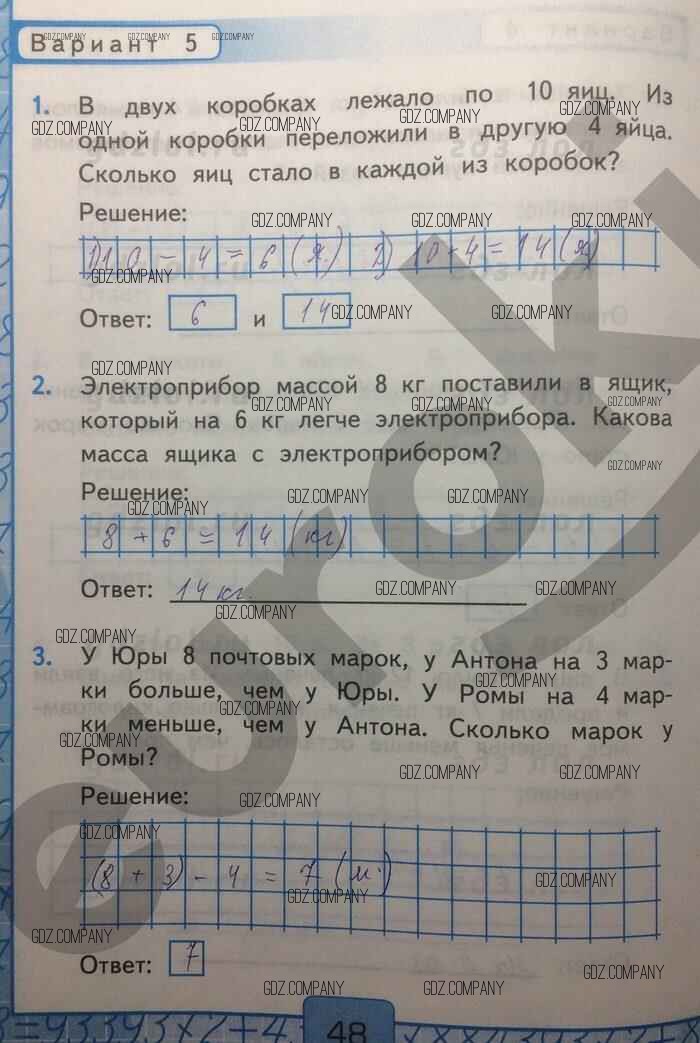 Вариант 5
1. В двух коробках лежало по 10 яиц. Из
одной коробки переложили в другую 4 яйца.
Сколько яиц стало в каждой из коробок?
Решение:
1) 10 - 4 = 6 (я.) 2) 10 + 4 = 14 (я)
Ответ: 6 и 14
2. Электроприбор массой 8 кг поставили в ящик,
который на 6 кг легче электроприбора. Какова
масса ящика с электроприбором?
Решение:
8 + 6 = 14 (кг)
Ответ: 14 кг.
3. У Юры 8 почтовых марок, у Антона на 3 мар-
ки больше, чем у Юры. У Ромы на 4 мар-
ки меньше, чем у Антона. Сколько марок у
Ромы?
Решение:
(8 + 3) - 4 = 7 (м.)
Ответ: 7
48
GDZ.COMPANY
euroki